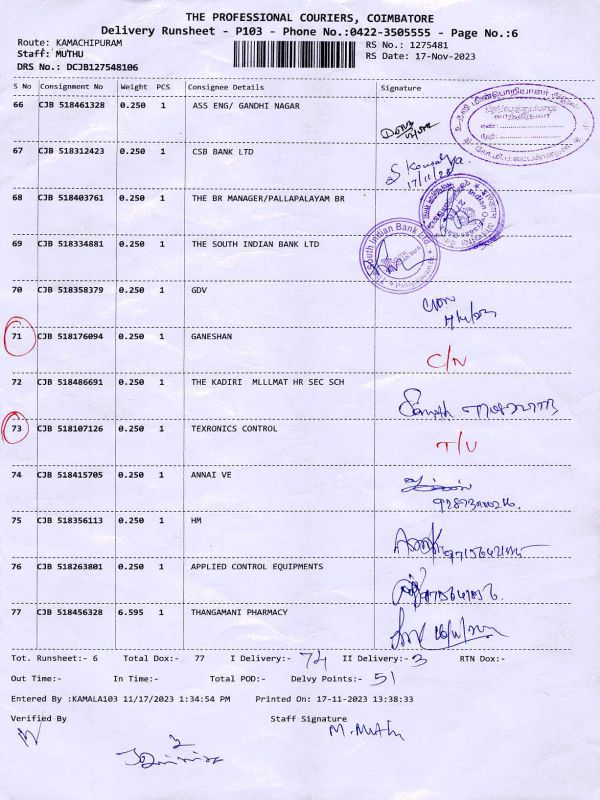 THE PROFESSIONAL COURIERS, COIMBATORE
Delivery Runsheet - P103 - Phone No.:0422-3505555 - Page No.:6
Route: KAMACHIPURAM RS No.: 1275481
Staff: MUTHU RS Date: 17-Nov-2023
DRS No.: DCJB127548106
S No Consignment No Weight PCS Consignee Details Signature
66 CJB 518461328 0.250 1 ASS ENG/ GANDHI NAGAR
67 CJB 518312423 0.250 1 CSB BANK LTD
68 CJB 518403761 0.250 1 THE BR MANAGER/PALLAPALAYAM BR
69 CJB 518334881 0.250 1 THE SOUTH INDIAN BANK LTD
South Indian Bank Ltd
70 CJB 518358379 0.250 1 GDV
71 CJB 518176094 0.250 1 GANESHAN C/N
72 CJB 518486691 0.250 1 THE KADIRI MLLLMAT HR SEC SCH
73 CJB 518107126 0.250 1 TEXRONICS CONTROL T/U
74 CJB 518415705 0.250 1 ANNAI VE
75 CJB 518356113 0.250 1 HM
76 CJB 518263801 0.250 1 APPLIED CONTROL EQUIPMENTS
77 CJB 518456328 6.595 1 THANGAMANI PHARMACY
Tot. Runsheet:- 6 Total Dox:- 77 I Delivery:- 74 II Delivery:- 3 RTN Dox:-
Out Time:- In Time:- Total POD:- Delvy Points:- 51
Entered By :KAMALA103 11/17/2023 1:34:54 PM Printed On: 17-11-2023 13:38:33
Verified By Staff Signature
M. Muthu